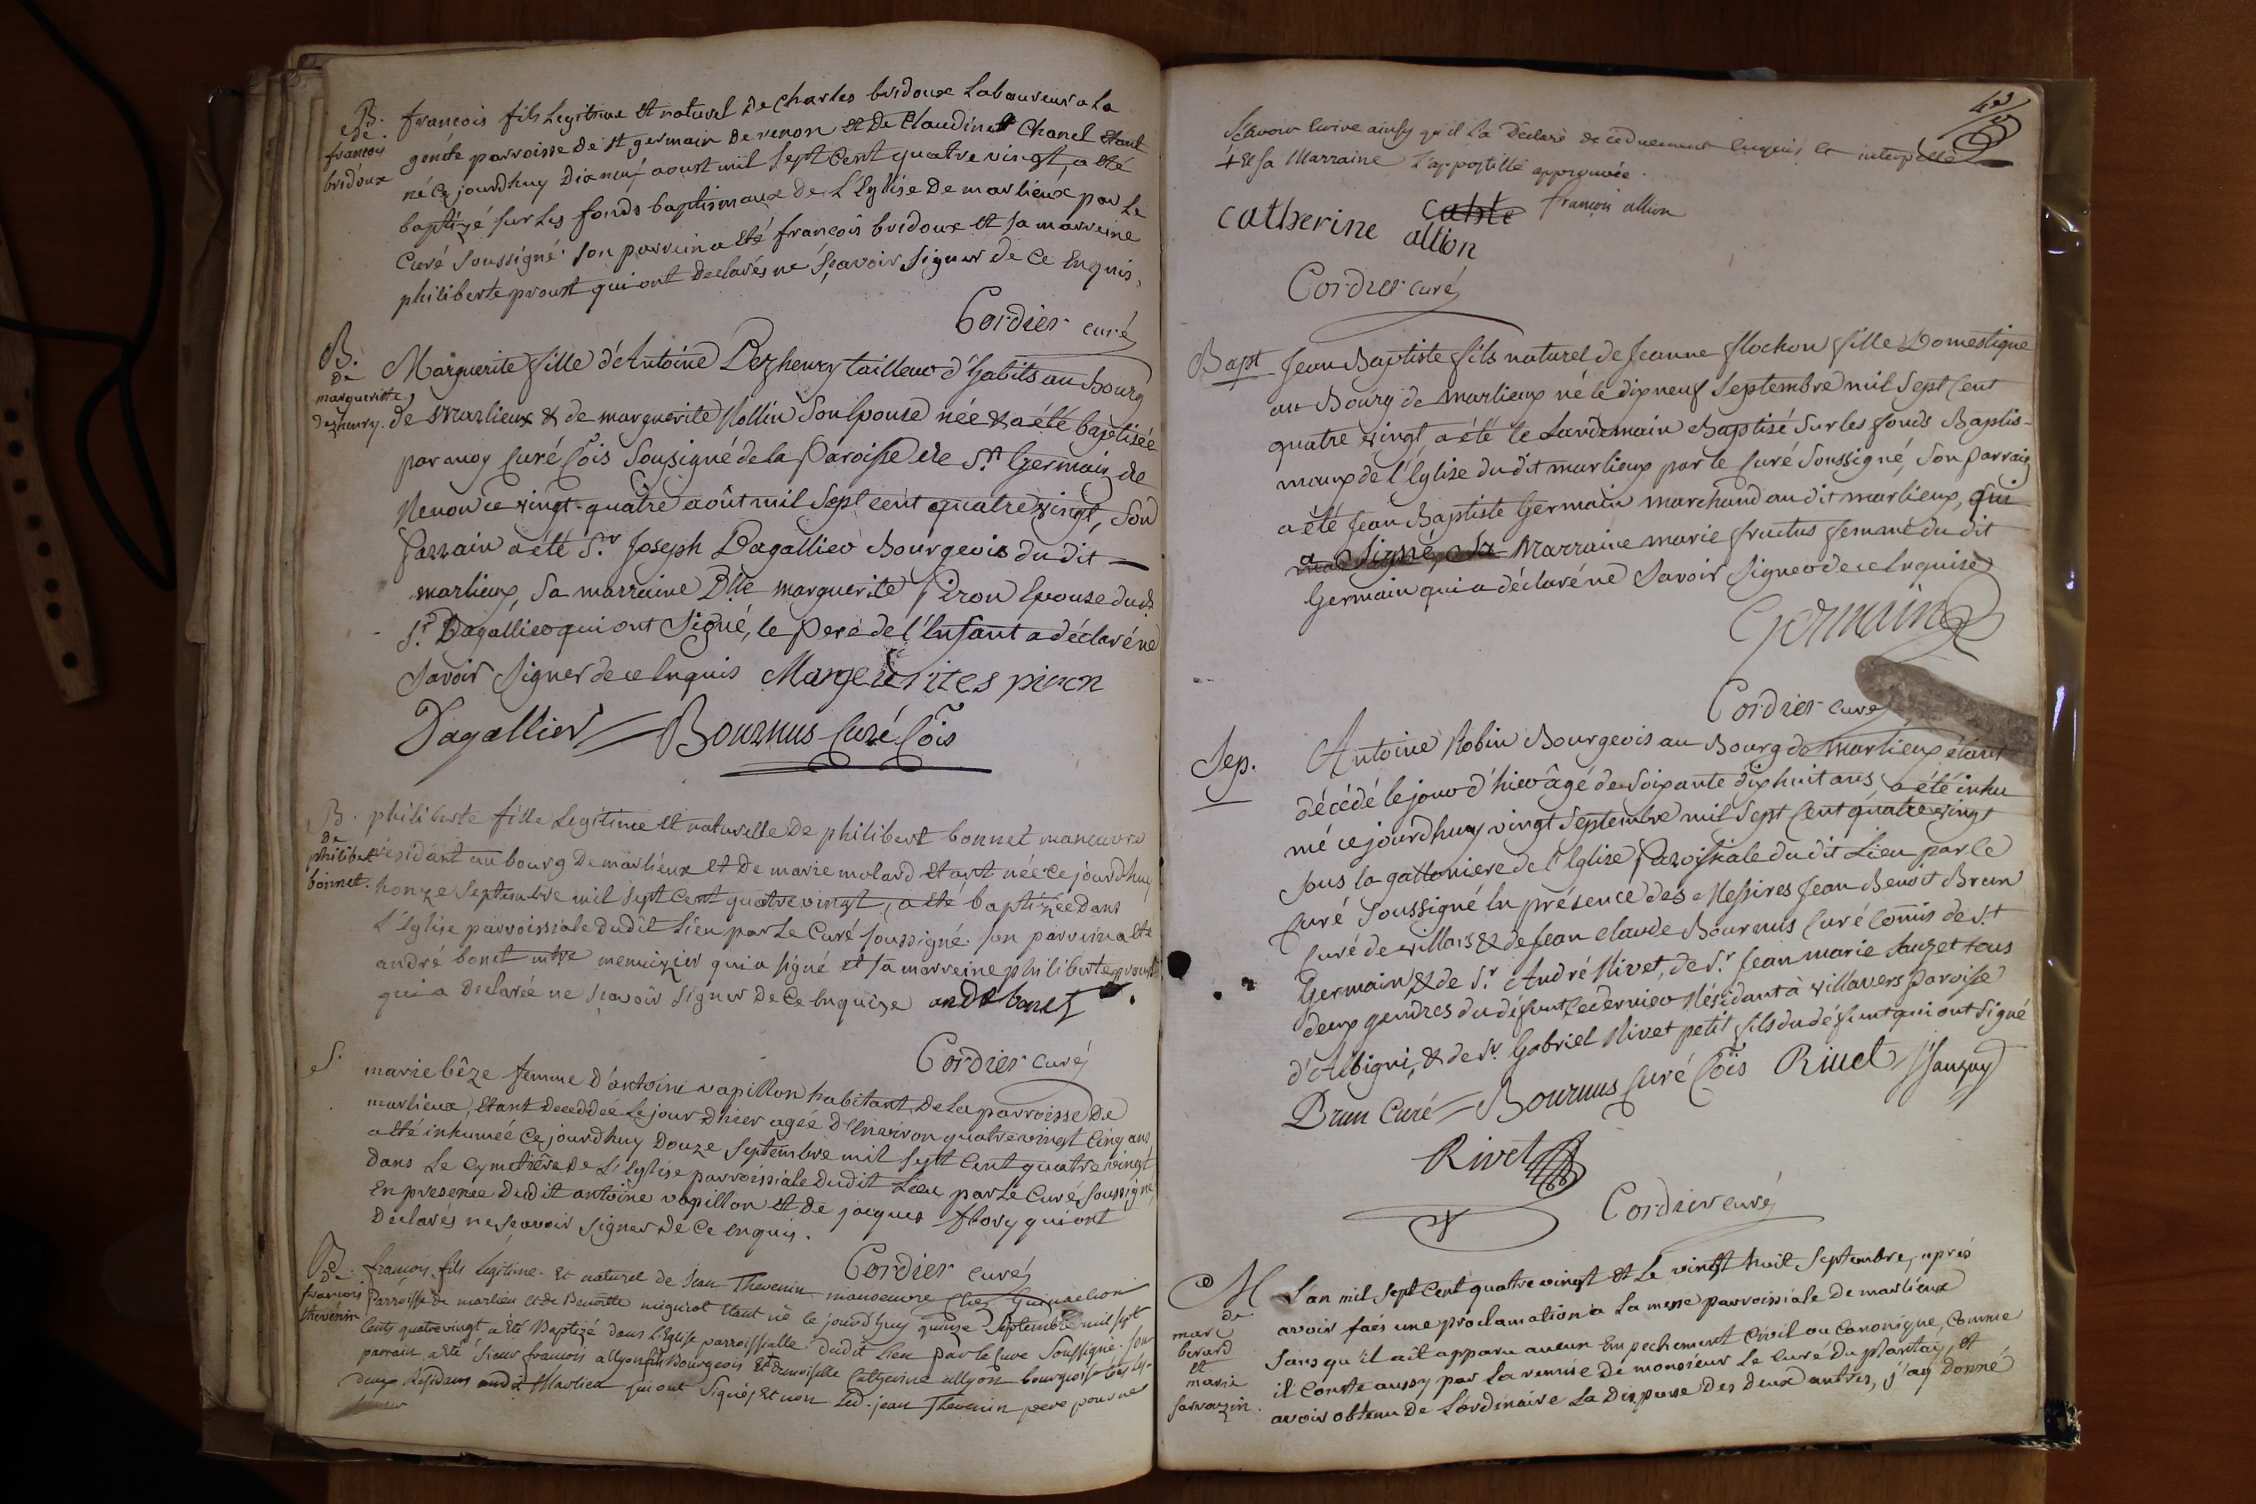 B. de francois bridoux
francois fils Legitime et naturel de Charles bridoux Laboureur a La
genéte parroisse de st germain de renon et de Claudine Chanel étant
né ce jourdhuy dixneuf aoust mil sept cent quatre vingt, a été
baptizé sur Les fonds baptismaux de L'Eglise de marlieux par Le
Curé soussigné. son parrein a été francois bridoux et sa marreine
philiberte proust qui ont declarés ne sçavoir signer de ce Enquis.
Cordier curé
B. de margueritte dezhenry.
Marguerite fille d'Antoine Dezhenry tailleur d'habits au bourg
de Marlieux & de marguerite Rollin son Epouse née & a été baptisée
par moy Curé Cõis Sousigné de la Paroisse de St. Germain de
Renon ce vingt-quatre août mil Sept cent quatre vingt, Son
Parrain a été Sr. Joseph Dagallier Bourgeois du dit
marlieux, Sa marraine Dlle marguerite Piron Epouse dud.
Sr. Dagallier qui ont Signé, le Pere de l'Enfant a déclaré ne
Savoir Signer de ce Enquis Margerites piron
Dagallier Bournus Curé Cõis
B. De philiberte bonnet.
philiberte fille Legitime et naturelle de philibert bonnet manœuvre
residant au bourg de marlieux et de marie molard étant née ce jourdhuy
honze septembre mil sept cent quatre vingt, a été baptizée dans
L'Eglise parroissiale dudit Lieu par Le Curé soussigné. son parrein a été
andré bonet mtre menuizier qui a signé et sa marreine philiberte proust
qui a declarée ne sçavoir signer de ce enquize andre bonet
Cordier curé
S.
marie bêze femme d'antoine vapillon habitant de La parroisse de
marlieux, étant decedée Le jour d'hier agée d'Environ quatre vingt Cinq ans,
a été inhumée ce jourdhuy douze septembre mil sept cent quatre vingt
dans Le Cymetière de L'Eglise parroissiale dudit Lieu par Le Curé soussigné,
En presence dudit antoine vapillon et de jacques flory qui ont
declarés ne sçavoir signer de ce enquis.
Cordier curé
B. De francois thevenin
francois fils Legitime et naturel de Jean Thevenin manoeuvre
Parroisse de marlieu et de Benoitte mignot étant né le jourdhuy quinze Septembre mil sept
Cents quatre vingt a été Baptizé dans L'Eglise parroissialle dudit Lieu par le Curé Soussigné. son
parrain a été Sieur francois allyon fils Bourgeois et demoiselle Catherine allyon bourgeoise tous les
deux Résidans audit Marlieu qui ont Signés, et non Led. jean Thevenin pere pour ne
Sçavoir Ecrire ainsy qu'il La Déclaré de ce duement Enquis et interpellé
+ et sa Marraine L'appostille approuvée.
Catherine allion françois allion
Cordier curé
Bapt
Jean Baptiste fils naturel de Jeanne flochon fille Domestique
au Bourg de Marlieux né le dix neuf Septembre mil Sept Cent
quatre vingt, a été le Landemain Baptisé Sur les fonds Baptis-
maux de l'Eglise du dit marlieux par le Curé Soussigné, Son Parrain
a été Jean Baptiste Germain marchand au dit marlieux, qui
a Signé, Sa Marraine marie fructus femme du dit
Germain qui a déclaré ne Savoir Signer de ce Enquise
Germain
Cordier curé
Sep.
Antoine Robin Bourgeois au Bourg de Marlieux étant
décédé le jour d'hier âgé de Soixante dix huit ans, a été inhu
mé ce jourd'huy vingt Septembre mil Sept Cent quatre vingt
Sous la galloniere de l'Eglise Paroissiale du dit Lieu par le
Curé Soussigné En présence des Messires Jean Benoit Brun
Curé de villars & de Jean Claude Bournus Curé Cõmis de St
Germain, & de Sr. André Rivet, de Sr. Jean Marie Sauzet tous
deux gendres du défunt ce dernier Résidant à villavers Paroisse
d'Albigni, & de Sr. Gabriel Rivet petit fils du défunt qui ont Signé
Brun Curé Bournus Curé Cõis Rivet Sauzay
Rivet
Cordier curé
M de marc berard et marie sarrazin.
L'an mil sept Cent quatre vingt et Le vingt huit septembre, après
avoir fais une proclamation a La messe parroissiale de marlieux
sans qu'il aît apparu aucun Empechement Civil ou Canonique, Comme
il Conste aussy par La remise de monsieur Le Curé du plantay, et
avoir obtenu de L'ordinaire La dispense des deux autres, j'ay donné